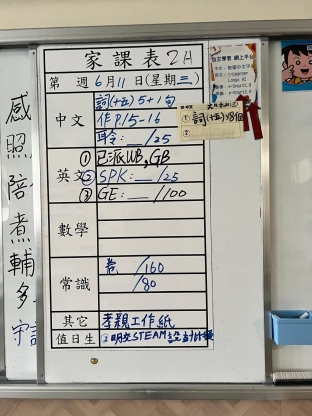 家課表 2H
第 週 6月11日(星期三)
中文
詞(十五) 5+1句
作 P.15-16
聆: __/25
英文
① 已派WB, GB
② SPK: __/25
③ GE: __/100
數學
常識
卷 /160
/80
其它
孝親工作紙
值日生
明交STEAM設計計
① 詞(十五)x8個
②
自主學習 網上平台
感
照
陪
煮
輔
多